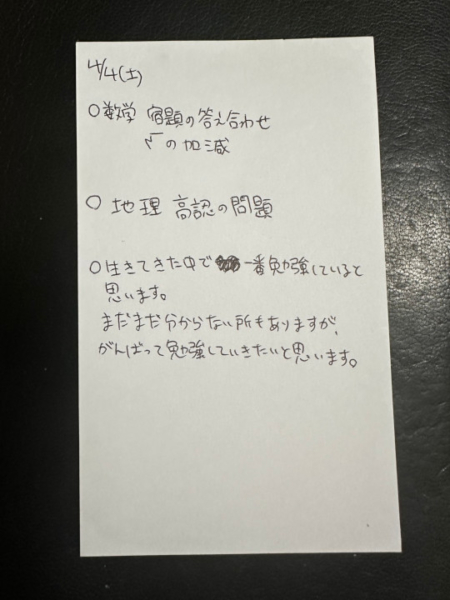 4/4(土)
○数学 宿題の答え合わせ
√の加減
○ 地理 高認の問題
○生きてきた中で 一番勉強していると
思います。
まだまだ分からない所もありますが、
がんばって勉強していきたいと思います。